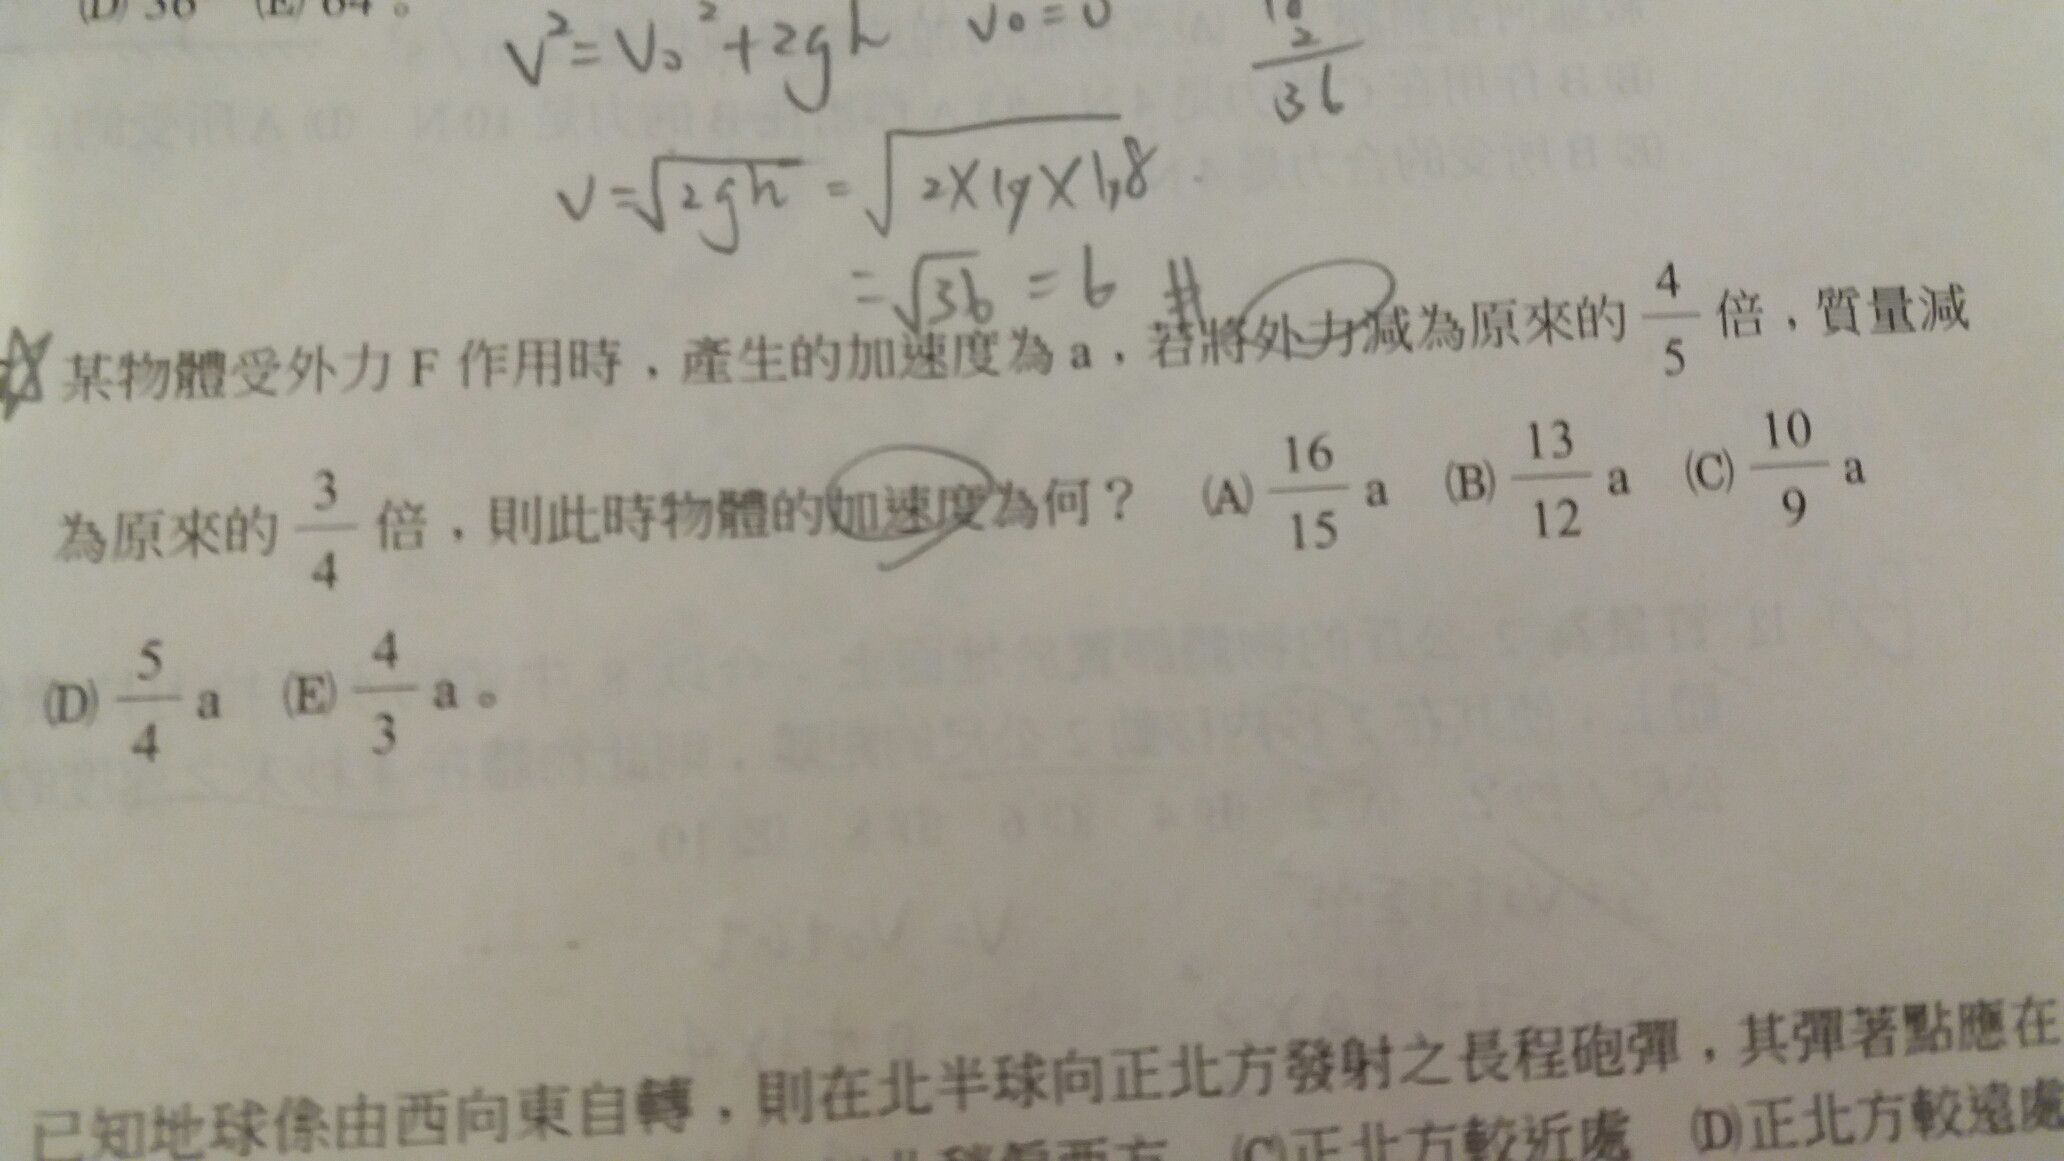 (D) 36 (E) 64。
V²=V₀²+2gh V₀=0
2
36
V=√2gh =
=√36 = 6 #
某物體受外力 F 作用時，產生的加速度為 a，若將外力減為原來的 4/5 倍，質量減
為原來的 3/4 倍，則此時物體的加速度為何？ (A) 16/15 a (B) 13/12 a (C) 10/9 a
(D) 5/4 a (E) 4/3 a。
已知地球係由西向東自轉，則在北半球向正北方發射之長程砲彈，其彈著點應在
(C)正北方較近處 (D)正北方較遠處